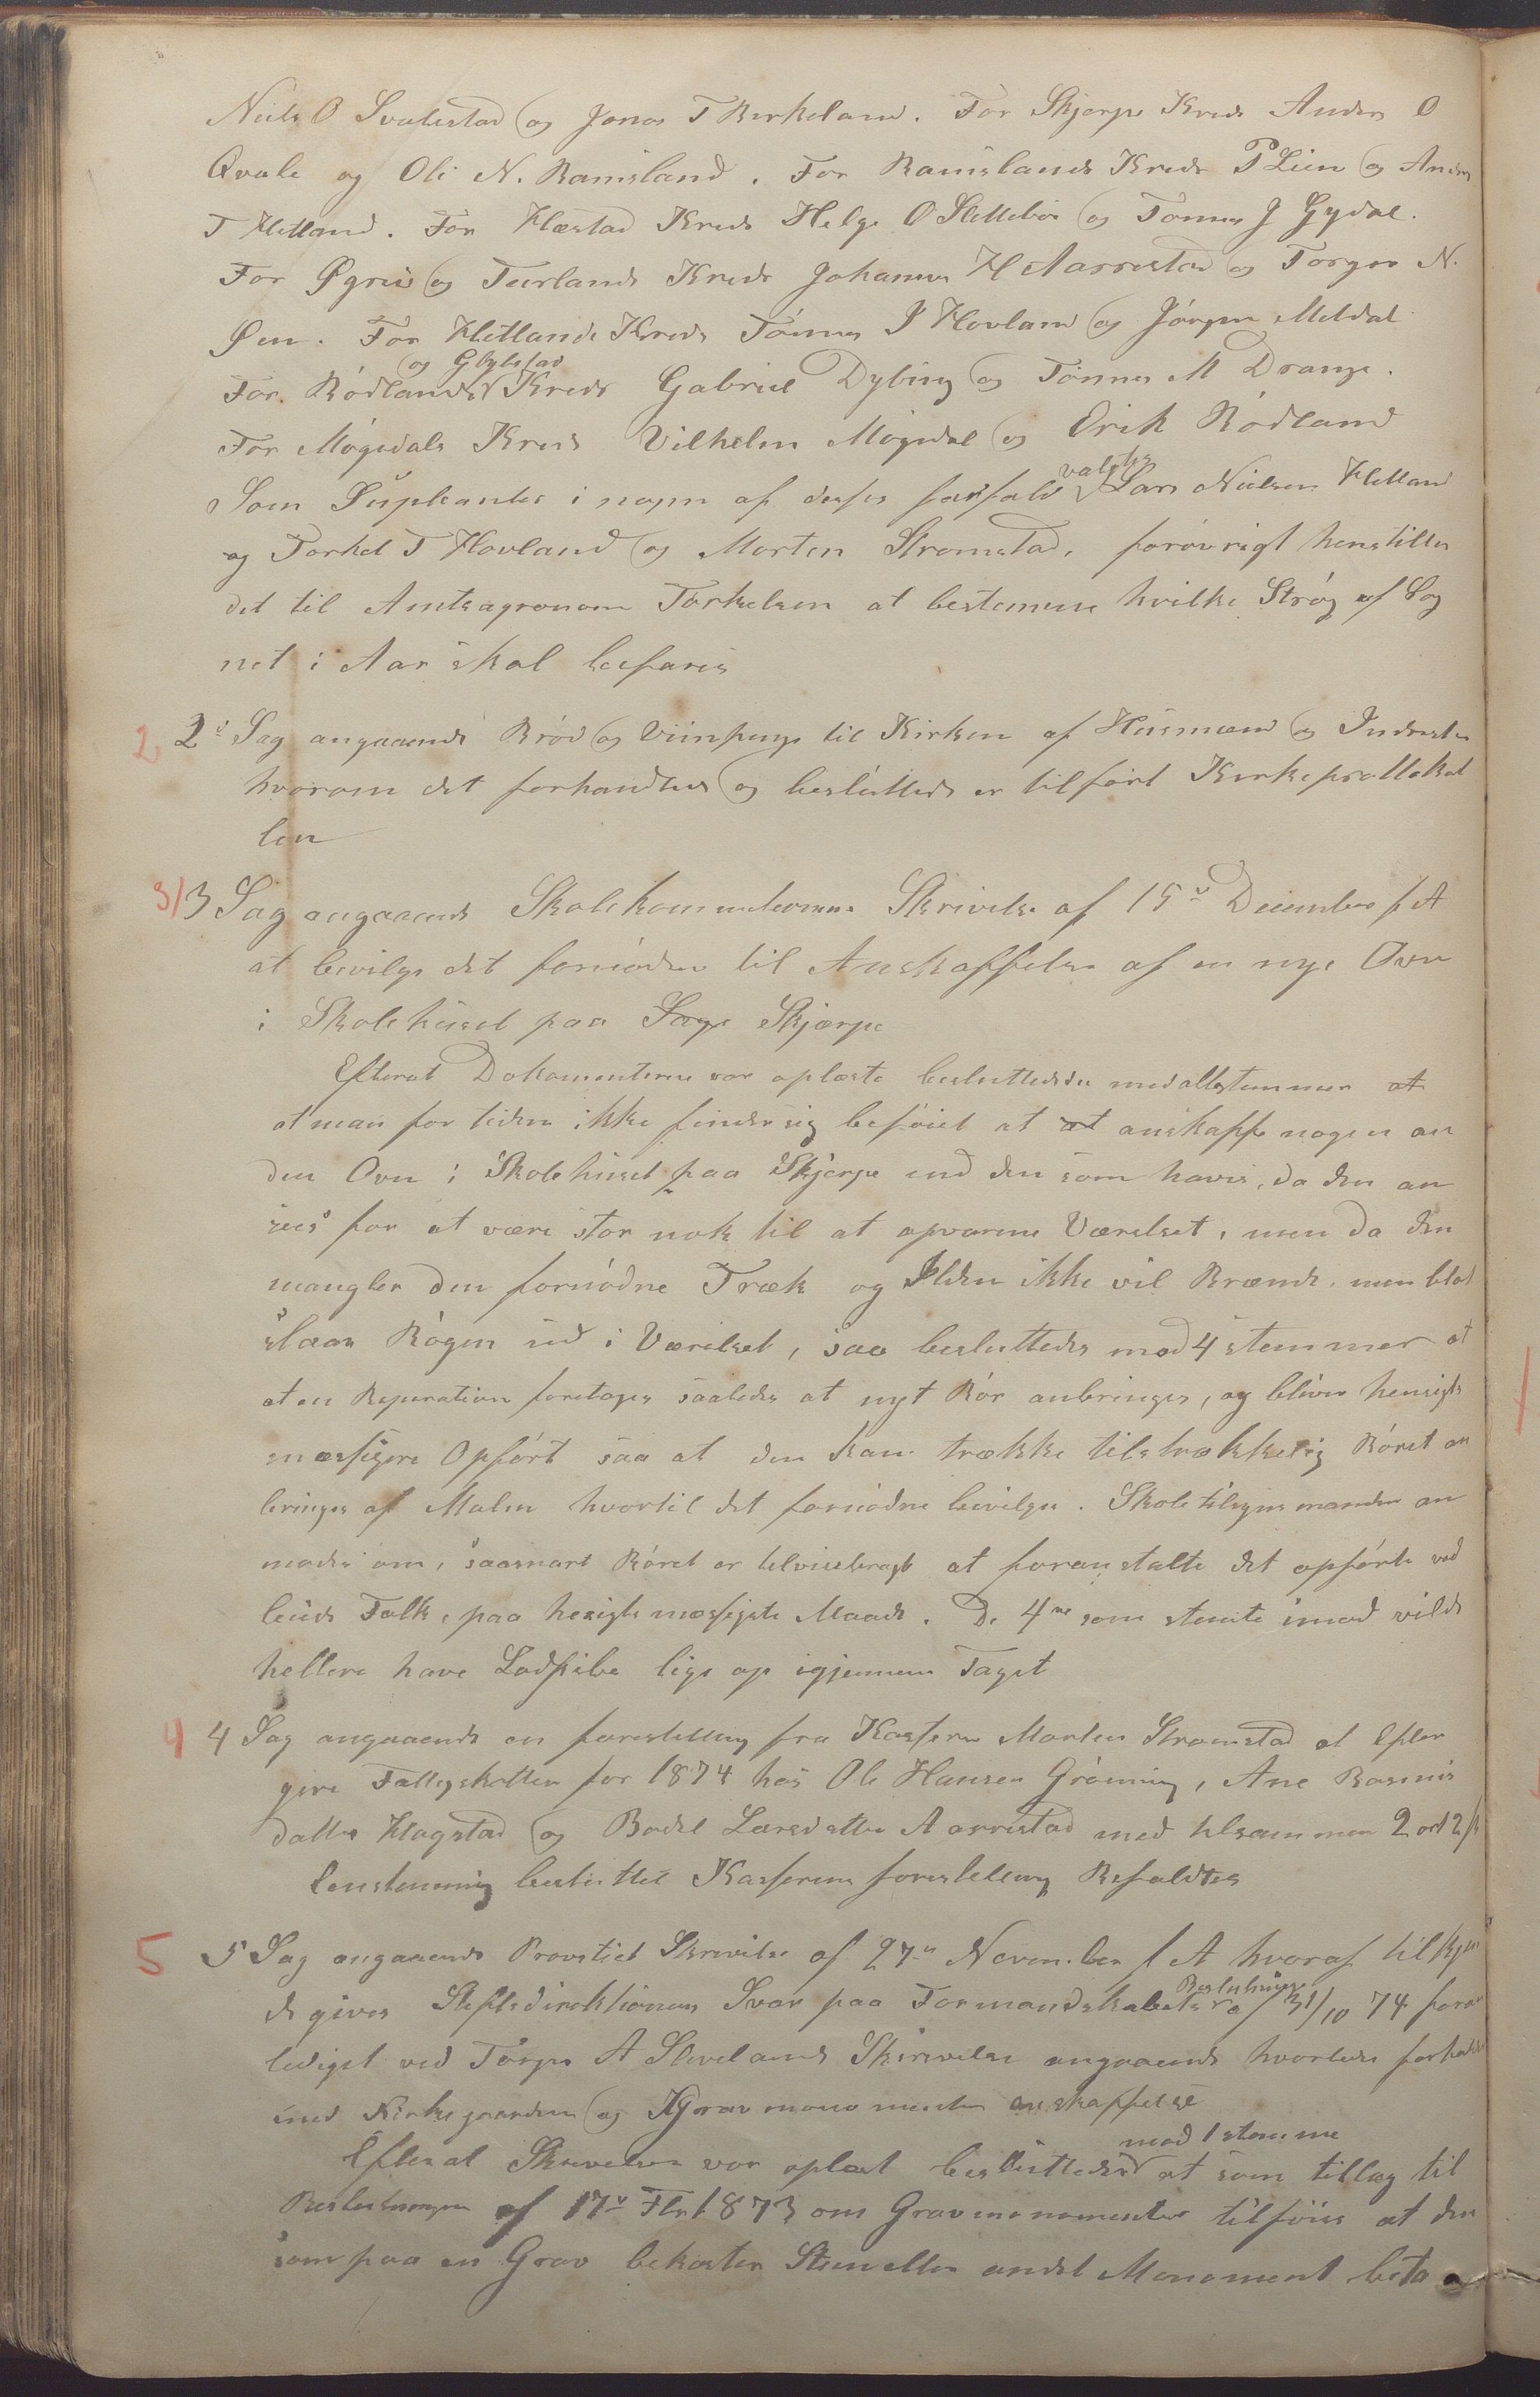 Niels O Svalestad og Jonas T Birkeland. For Skjerpe Kreds Anders O
Qvale og Ole N. Ramsland. For Ramslands Kreds P Lien og Anders
T Hetland. For Hæstad Kreds Helge O Slettebø og Tønnes J Gydal.
For Øgreis og Teerlands Kreds Johannes H Aarrestad og Torger N.
Øen. For Hetlands Kreds Tönnes J Hovland og Jörgen Meldal
og Glypstad
For Rödlands Kreds Gabriel Dybing og Tönnes M Drange.
For Mögedals Kreds Vilhelm Mögedal og Erik Rödland
valgtes
Som Supleanter i nogen af disses forfald Lars Nielsen Hetland
og Torkel T Hovland og Morten Stromstad, forövrigt henstilles
det til Amtsagronom Torkelsen at bestemme hvilke Strög af Sog
net i Aar skal befares
2 2: Sag angaaende Bröd og Viinpenge til Kirken af Husmænd og Inderster
hvorom det forhandledes og besluttede er tilfört Kirkeprottokol
len
3/ 3 Sag angaaende Skolekommisionens Skrivelse af 15de December f A
at bevilge det fornödne til Anskaffelse af en nye Ovn
i Skolehuset paa Sage Skjærpe
Efterat Dokumenterne var oplæste besluttedes med alle stemmer at
at man for tiden ikke finder sig beföiet at at anskaffe nogen an
den Ovn i Skolehuset paa Skjerpe end den som haves, da den an
sees for at være stor nok til at opvarme Værelset, men da den
mangler den fornödne Træk og Ilden ikke vil Brænde, men blot
slaar Rögen ud i Værelset, saa besluttedes mod 4 stemmer at
at en Reparation foretages saaledes at nyt Rör anbringes, og bliver hensigts
mæssigere Opfört saa at den kan trække tilstrækkelig Röret an
bringes af Malm hvortil det fornödne bevilges. Skoletilsynsmanden an
modes om, saasnart Röret er tilveiebragt at foranstalte det opförte ved
leiede Folk, paa hensigtsmæssigste Maade. De 4re som stemte imod vilde
hellere have Lodpibe lige op igjennem Taget
4 4 Sag angaaende en forestilling fra Kasserer Morten Stromstad at Efter
give Fattigskatten for 1874 hos Ole Hansen Gröning, Ane Rasmus
datter Hagstad og Bodel Larsdatter Aarrestad med tilsammen 2 ort 2 s
Eenstemmig besluttet Kasserens forestilling Befaldtes
5 5 Sag angaaende Provstiet Skrivelse af 27de November f A hvoraf tilkjen
Beslutning
de gives Stiftsdirektionens Svar paa Formandskabets af 31/10 74 foran
lediget ved Törges A Slevelands Skrivelse angaaende hvorledes forholdes
med Kirkegaarden og Gravmonumenters anskaffelse
mod 1 stemme
Efterat Skrivelsen var oplæst besluttedes at som tillæg til
Beslutningen af 17de Fbr 1873 om Gravmonumenter tilföies at den
som paa en Grav bekoster Steen eller andet Monoment beta